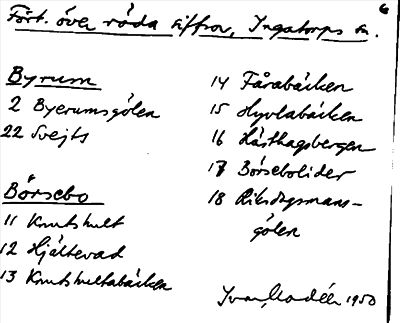 Fört. över röda siffror, Ingatorps sn.
6
Byrum
2 Byerumsgölen
22 Svejts
Börsebo
11 Knutshult
12 Hjältevad
13 Knutshultabäcken
14 Fårabäcken
15 Hyvlabäcken
16 Hästhagsbergen
17 Börsebolider
18 Riksdagsmans-
gölen
1950